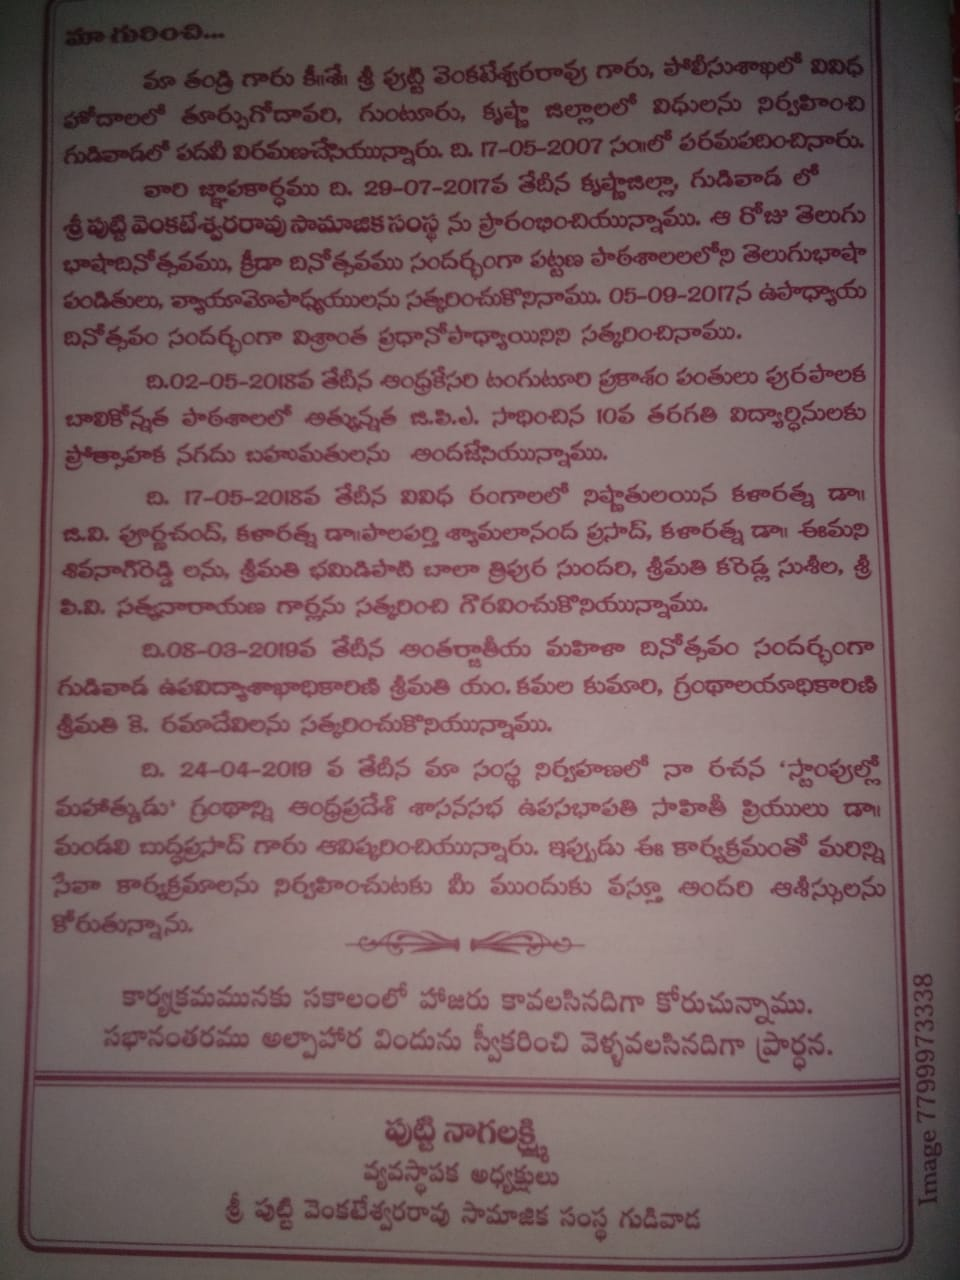 మా గురించి...
మా తండ్రి గారు కీ॥శే॥ శ్రీ పుట్టి వెంకటేశ్వరరావు గారు, పోలీసుశాఖలో వివిధ
హోదాలలో తూర్పుగోదావరి, గుంటూరు, కృష్ణా జిల్లాలలో విధులను నిర్వహించి
గుడివాడలో పదవీ విరమణచేసియున్నారు. ది. 17-05-2007 సం॥లో పరమపదించినారు.
వారి జ్ఞాపకార్ధము ది. 29-07-2017వ తేదీన కృష్ణాజిల్లా, గుడివాడ లో
శ్రీ పుట్టి వెంకటేశ్వరరావు సామాజిక సంస్థ ను ప్రారంభించియున్నాము. ఆ రోజు తెలుగు
భాషాదినోత్సవము, క్రీడా దినోత్సవము సందర్భంగా పట్టణ పాఠశాలలలోని తెలుగుభాషా
పండితులు, వ్యాయామోపాధ్యయులను సత్కరించుకొనినాము. 05-09-2017న ఉపాధ్యాయ
దినోత్సవం సందర్భంగా విశ్రాంత ప్రధానోపాధ్యాయినిని సత్కరించినాము.
ది.02-05-2018వ తేదీన ఆంధ్రకేసరి టంగుటూరి ప్రకాశం పంతులు పురపాలక
బాలికోన్నత పాఠశాలలో అత్యున్నత జి.పి.ఎ. సాధించిన 10వ తరగతి విద్యార్ధినులకు
ప్రోత్సాహక నగదు బహుమతులను అందజేసియున్నాము.
ది. 17-05-2018వ తేదీన వివిధ రంగాలలో నిష్ణాతులయిన కళారత్న డా॥
జి.వి. పూర్ణచంద్, కళారత్న డా॥పాలపర్తి శ్యామలానంద ప్రసాద్, కళారత్న డా॥ ఈమని
శివనాగిరెడ్డి లను, శ్రీమతి భమిడిపాటి బాలా త్రిపుర సుందరి, శ్రీమతి కరెడ్ల సుశీల, శ్రీ
పి.వి. సత్యనారాయణ గార్లను సత్కరించి గౌరవించుకొనియున్నాము.
ది.08-03-2019వ తేదీన అంతర్జాతీయ మహిళా దినోత్సవం సందర్భంగా
గుడివాడ ఉపవిద్యాశాఖాధికారిణి శ్రీమతి యం. కమల కుమారి, గ్రంథాలయాధికారిణి
శ్రీమతి కె. రమాదేవిలను సత్కరించుకొనియున్నాము.
ది. 24-04-2019 వ తేదీన మా సంస్థ నిర్వహణలో నా రచన 'స్టాంపుల్లో
మహాత్ముడు' గ్రంథాన్ని ఆంధ్రప్రదేశ్ శాసనసభ ఉపసభాపతి సాహితీ ప్రియులు డా॥
మండలి బుద్ధప్రసాద్ గారు ఆవిష్కరించియున్నారు. ఇప్పుడు ఈ కార్యక్రమంతో మరిన్ని
సేవా కార్యక్రమాలను నిర్వహించుటకు మీ ముందుకు వస్తూ అందరి ఆశీస్సులను
కోరుతున్నాను.
కార్యక్రమమునకు సకాలంలో హాజరు కావలసినదిగా కోరుచున్నాము.
సభానంతరము అల్పాహార విందును స్వీకరించి వెళ్ళవలసినదిగా ప్రార్ధన.
పుట్టి నాగలక్ష్మి
వ్యవస్థాపక అధ్యక్షులు
శ్రీ పుట్టి వెంకటేశ్వరరావు సామాజిక సంస్థ గుడివాడ
Image 7799973338